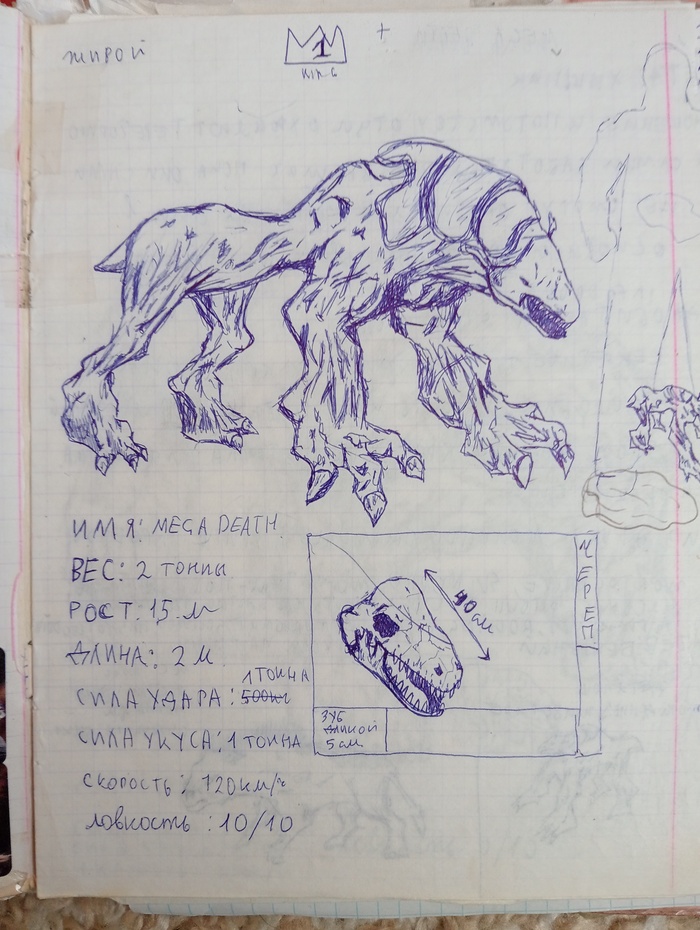 ЖИРОЙ
1
KING
ИМЯ: MEGA DEATH
ВЕС: 2 ТОННЫ
РОСТ: 1,5 М
ДЛИНА: 2 М
1 ТОННА
СИЛА УДАРА: 500кг
СИЛА УКУСА: 1 ТОННА
СКОРОСТЬ: 120км/ч
ЛОВКОСТЬ: 10/10
40 см
ЧЕРЕП
ЗУБ
ДЛИНОЙ
5 см